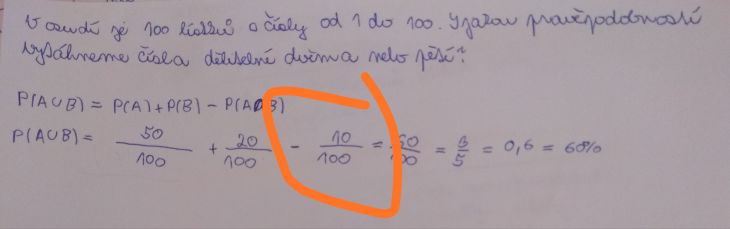 V osudí je 100 lístků s čísly od 1 do 100. S jakou pravděpodobností
vytáhneme čísla dělitelné dvěma nebo pěti?
P(A∪B) = P(A) + P(B) - P(A∩B)
P(A∪B) = 50/100 + 20/100 - 10/100 = 60/100 = 3/5 = 0,6 = 60%